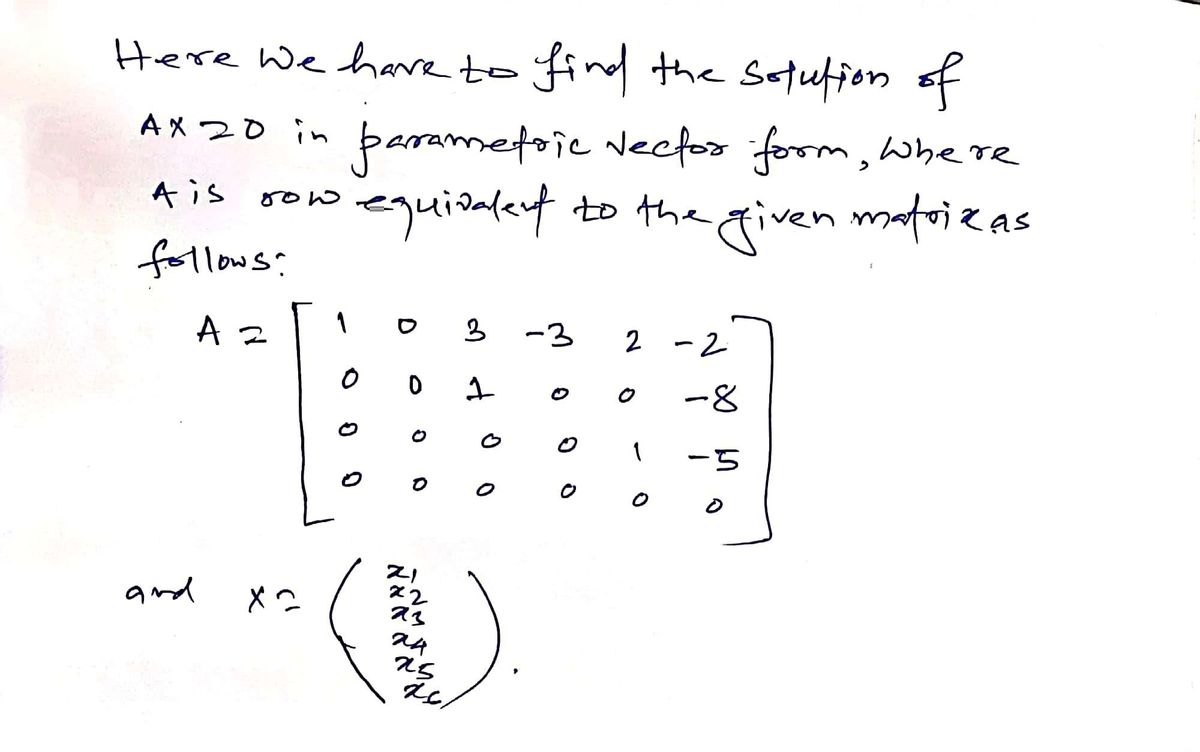 Here we have to find the solution of
AX = 0 in parametric vector form, where
A is row equivalent to the given matrix as
follows:
A = [ 1 0 3 -3 2 -2
0 0 1 0 0 -8
0 0 0 0 1 -5
0 0 0 0 0 0 ]
and X = ( x1
x2
x3
x4
x5
x6 ).